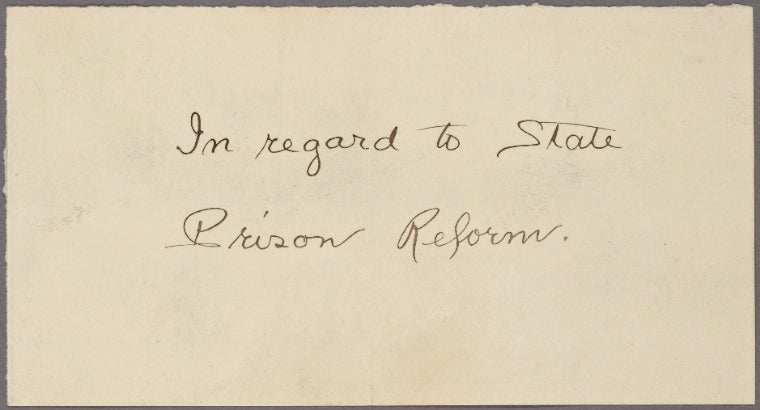 In regard to State
Prison Reform.